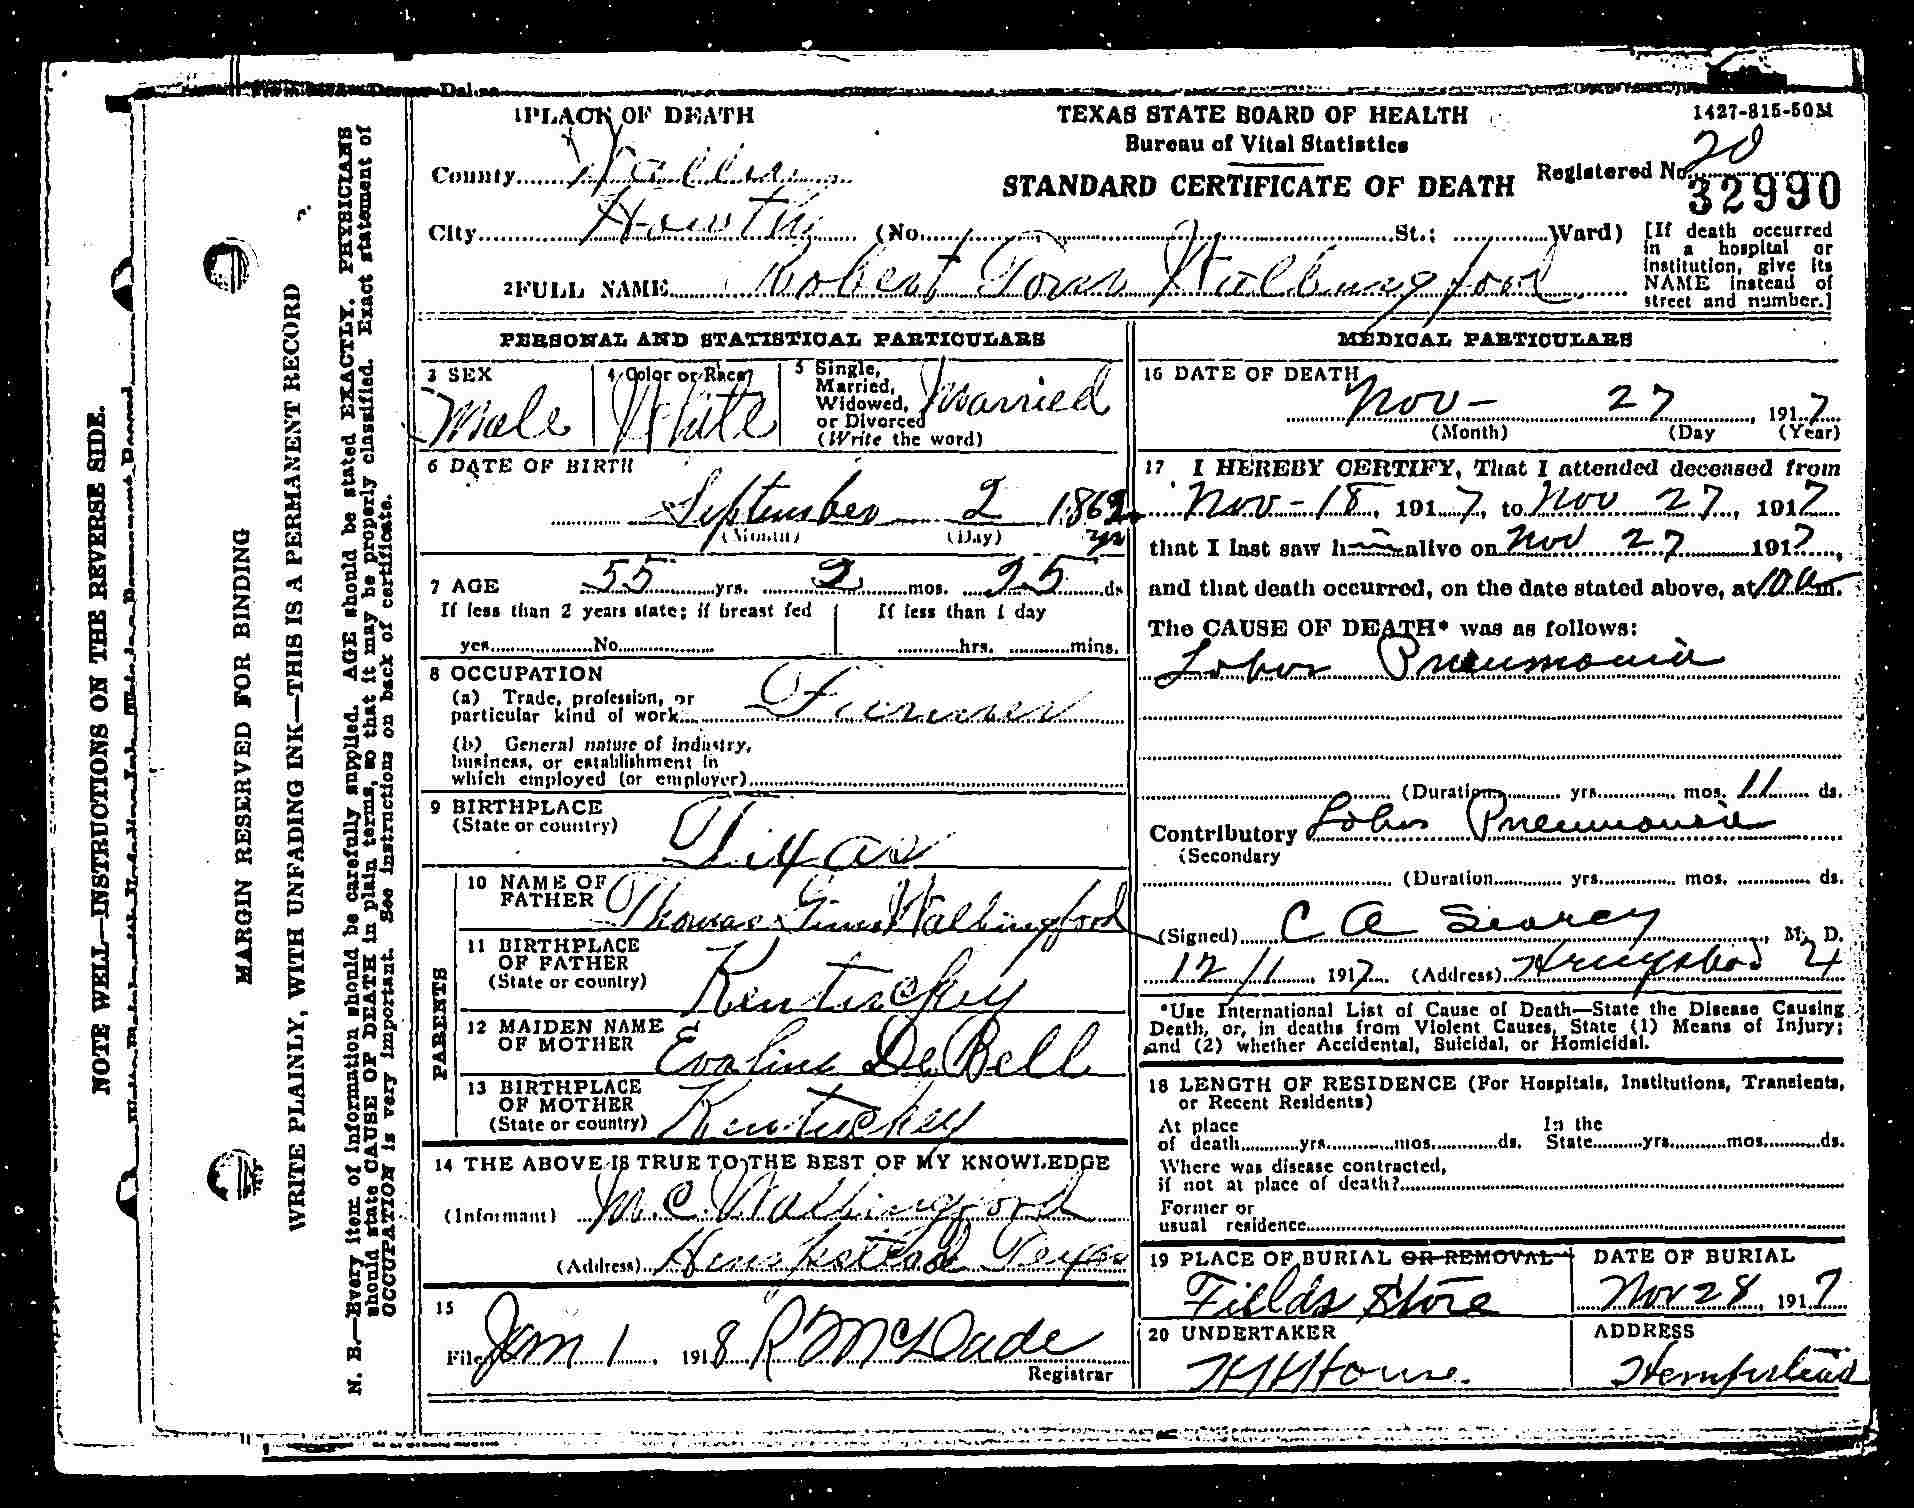 1 PLACE OF DEATH
County Waller
City Howth (No. St.; Ward)
TEXAS STATE BOARD OF HEALTH
Bureau of Vital Statistics
STANDARD CERTIFICATE OF DEATH
1427-815-50M
Registered No. 20
32990
[If death occurred
in a hospital or
institution, give its
NAME instead of
street and number.]
2 FULL NAME Robert Wallingford
PERSONAL AND STATISTICAL PARTICULARS
3 SEX
Male
4 Color or Race
White
5 Single,
Married,
Widowed,
or Divorced
(Write the word)
Married
6 DATE OF BIRTH
September 2 1862
(Month) (Day) yr
7 AGE 55 yrs. 2 mos. 25 ds
If less than 2 years state; if breast fed
yes No
If less than 1 day
hrs. mins.
8 OCCUPATION
(a) Trade, profession, or
particular kind of work Farmer
(b) General nature of Industry,
business, or establishment in
which employed (or employer)
9 BIRTHPLACE
(State or country)
Texas
PARENTS
10 NAME OF
FATHER Thomas Wallingford
11 BIRTHPLACE
OF FATHER
(State or country) Kentuckey
12 MAIDEN NAME
OF MOTHER Evaline DeBell
13 BIRTHPLACE
OF MOTHER
(State or country) Kentuckey
14 THE ABOVE IS TRUE TO THE BEST OF MY KNOWLEDGE
(Informant) M. C. Wallingford
(Address) Hempstead Texas
15
Filed Jan 1, 1918 R McDade
Registrar
MEDICAL PARTICULARS
16 DATE OF DEATH
Nov- 27, 1917
(Month) (Day (Year)
17 I HEREBY CERTIFY, That I attended deceased from
Nov-18, 1917, to Nov 27, 1917
that I last saw him alive on Nov 27 1917,
and that death occurred, on the date stated above, at 10 a m.
The CAUSE OF DEATH* was as follows:
Lobar Pneumonia
(Duration yrs. mos. 11 ds.
Contributory Lobar Pneumonia
(Secondary
(Duration yrs. mos. ds.
(Signed) C A Searcy, M. D.
12/1, 1917 (Address)
*Use International List of Cause of Death—State the Disease Causing
Death, or, in deaths from Violent Causes, State (1) Means of Injury;
and (2) whether Accidental, Suicidal, or Homicidal.
18 LENGTH OF RESIDENCE (For Hospitals, Institutions, Transients,
or Recent Residents)
At place
of death yrs. mos. ds.
In the
State yrs. mos. ds.
Where was disease contracted,
if not at place of death?
Former or
usual residence
19 PLACE OF BURIAL OR REMOVAL
Fields Store
DATE OF BURIAL
Nov 28, 1917
20 UNDERTAKER
ADDRESS
Hempstead
NOTE WELL—INSTRUCTIONS ON THE REVERSE SIDE.
MARGIN RESERVED FOR BINDING
WRITE PLAINLY, WITH UNFADING INK—THIS IS A PERMANENT RECORD
N. B.—Every item of information should be carefully supplied. AGE should be stated EXACTLY. PHYSICIANS
should state CAUSE OF DEATH in plain terms, so that it may be properly classified. Exact statement of
OCCUPATION is very important. See instructions on back of certificate.